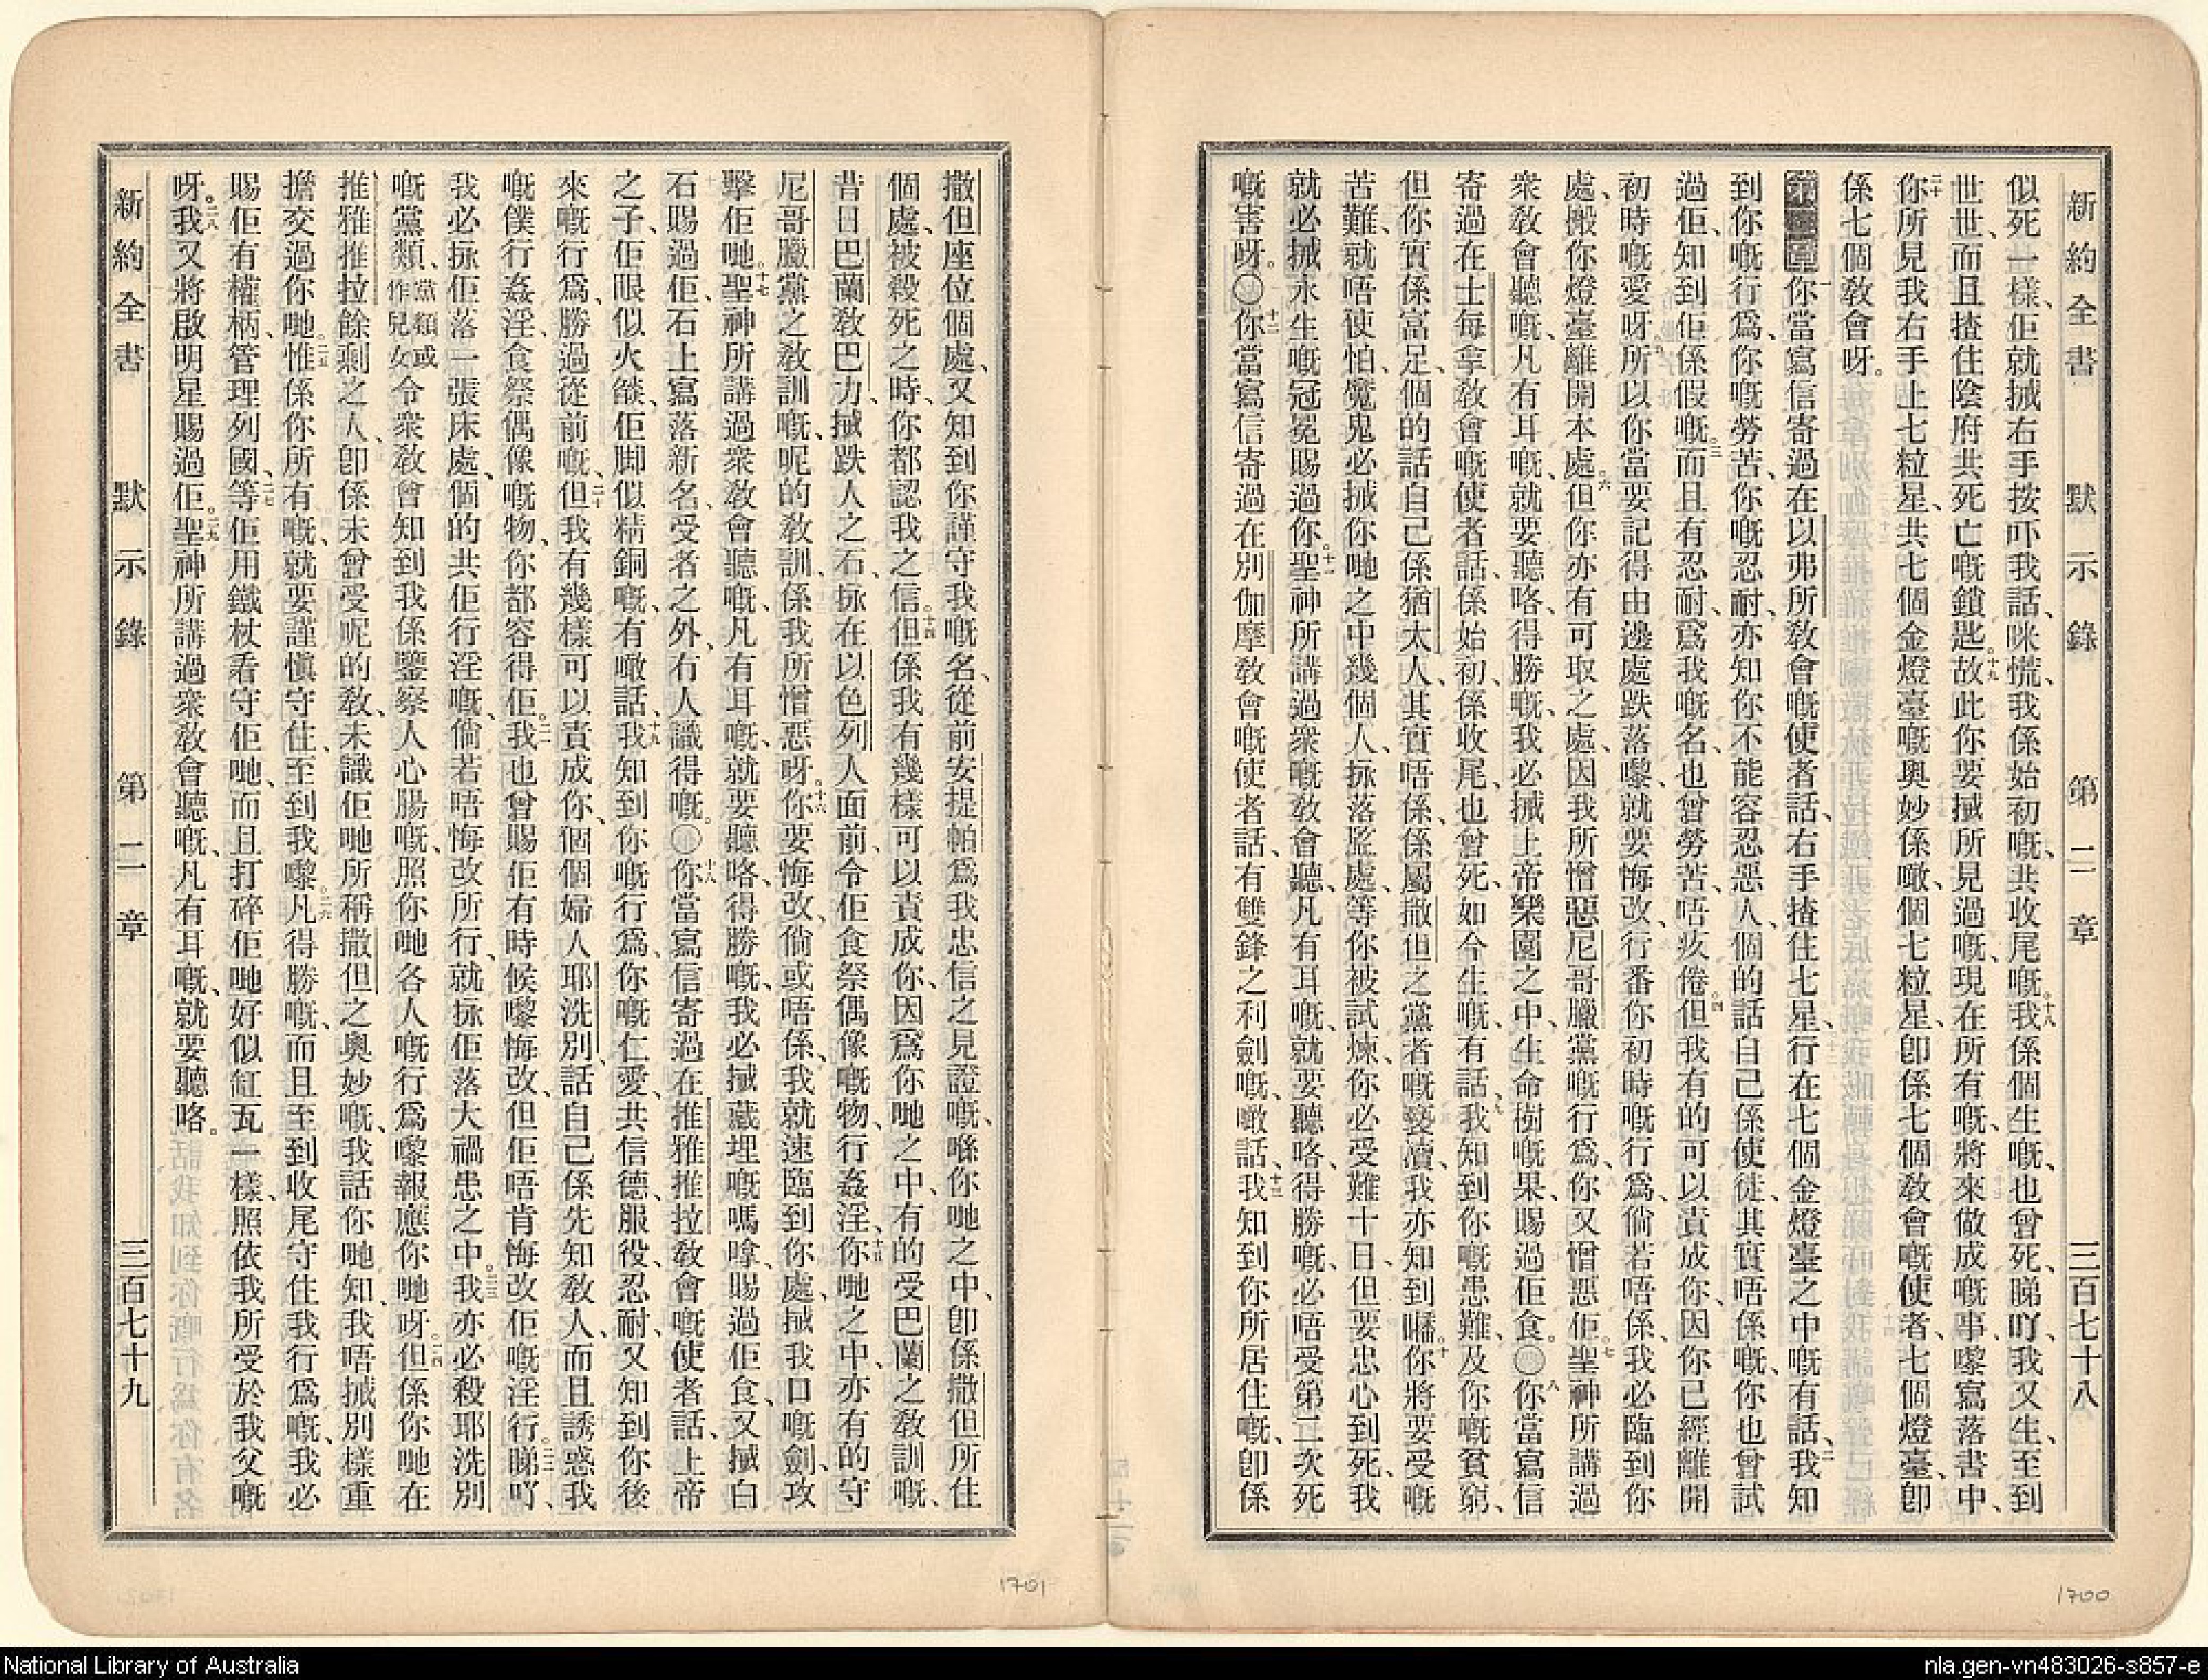 新約全書 默示錄 第二章 三百七十八
似死一樣、佢就搣右手按吓我話、咪慌、我係始初嘅、共收尾嘅。十八我係個生嘅、也曾死、睇吖、我又生、至到
世世、而且揸住陰府共死亡嘅鎖匙。十九故此你要搣所見過嘅、現在所有嘅、將來做成嘅事、嚟寫落書中、
二十你所見我右手上七粒星、共七個金燈臺嘅奧妙、係噉、個七粒星、卽係七個敎會嘅使者、七個燈臺、卽
係七個敎會呀。
第二章 一你當寫信寄過在以弗所敎會嘅使者話、右手揸住七星、行在七個金燈臺之中嘅有話、二我知
到你嘅行爲、你嘅勞苦、你嘅忍耐、亦知你不能容忍惡人、個的話自己係使徒、其實唔係嘅、你也曾試
過佢、知到佢係假嘅。三而且有忍耐、爲我嘅名、也曾勞苦、唔疚倦。四但我有的可以責成你、因你已經離開
初時嘅愛呀。五所以你當要記得由邊處跌落嚟、就要悔改、行番你初時嘅行爲、倘若唔係、我必臨到你
處、搬你燈臺離開本處。六但你亦有可取之處、因我所憎惡尼哥臘黨嘅行爲、你又憎惡佢。七聖神所講過
衆敎會聽嘅、凡有耳嘅、就要聽咯、得勝嘅、我必搣上帝樂園之中、生命樹嘅果、賜過佢食。〇八你當寫信
寄過在士每拿敎會嘅使者話、係始初、係收尾、也曾死、如今生嘅、有話、九我知到你嘅患難、及你嘅貧窮、
但你實係富足、個的話自己係猶太人、其實唔係、係屬撒但之黨者嘅褻瀆、我亦知到囇。十你將要受嘅
苦難、就唔使怕、魔鬼必搣你哋之中幾個人、捸落監處、等你被試煉、你必受難十日、但要忠心到死、我
就必搣永生嘅冠冕賜過你。十一聖神所講過衆嘅敎會聽、凡有耳嘅、就要聽咯、得勝嘅、必唔受第二次死
嘅害呀。〇十二你當寫信寄過在別伽摩敎會嘅使者話、有雙鋒之利劍嘅、噉話、十三我知到你所居住嘅、卽係
撒但座位個處、又知到你謹守我嘅名、從前安提帕爲我忠信之見證嘅、喺你哋之中、卽係撒但所住
個處、被殺死之時、你都認我之信。十四但係我有幾樣可以責成你、因爲你哋之中、有的受巴蘭之敎訓嘅、
昔日巴蘭敎巴力、搣跌人之石、捸在以色列人面前、令佢食祭偶像嘅物、行姦淫、十五你哋之中、亦有的守
尼哥臘黨之敎訓嘅、呢的敎訓、係我所憎惡呀。十六你要悔改、倘或唔係、我就速臨到你處、搣我口嘅劍、攻
擊佢哋。十七聖神所講過衆敎會聽嘅、凡有耳嘅、就要聽咯、得勝嘅、我必搣藏埋嘅嗎嗱賜過佢食、又搣白
石賜過佢、石上寫落新名、受者之外、冇人識得嘅。〇十八你當寫信寄過在推雅推拉敎會嘅使者話、上帝
之子、佢眼似火燄、佢脚似精銅嘅、有噉話、十九我知到你嘅行爲、你嘅仁愛、共信德、服役、忍耐、又知到你後
來嘅行爲、勝過從前嘅、二十但我有幾樣可以責成你、個個婦人耶洗別、話自己係先知敎人、而且誘惑我
嘅僕行姦淫、食祭偶像嘅物、你都容得佢。二一我也曾賜佢有時候嚟悔改、但佢唔肯悔改佢嘅淫行。二二睇吖、
我必捸佢落一張床處、個的共佢行淫嘅、倘若唔悔改所行、就捸佢落大禍患之中。二三我亦必殺耶洗別
嘅黨類、黨類或作兒女令衆敎會知到我係鑒察人心腸嘅、照你哋各人嘅行爲嚟報應你哋呀。二四但係你哋在
推雅推拉餘剩之人、卽係未曾受呢的敎、未識佢哋所稱撒但之奧妙嘅、我話你哋知、我唔搣別樣重
擔交過你哋。二五惟係你所有嘅、就要謹愼守住、至到我嚟。二六凡得勝嘅、而且至到收尾守住我行爲嘅、我必
賜佢有權柄、管理列國、二七等佢用鐵杖看守佢哋、而且打碎佢哋好似缸瓦一樣、照依我所受於我父嘅
呀。二八我又將啟明星賜過佢。二九聖神所講過衆敎會聽嘅、凡有耳嘅、就要聽咯。
新約全書 默示錄 第二章 三百七十九
1701
1700
National Library of Australia
nla.gen-vn483026-s857-e